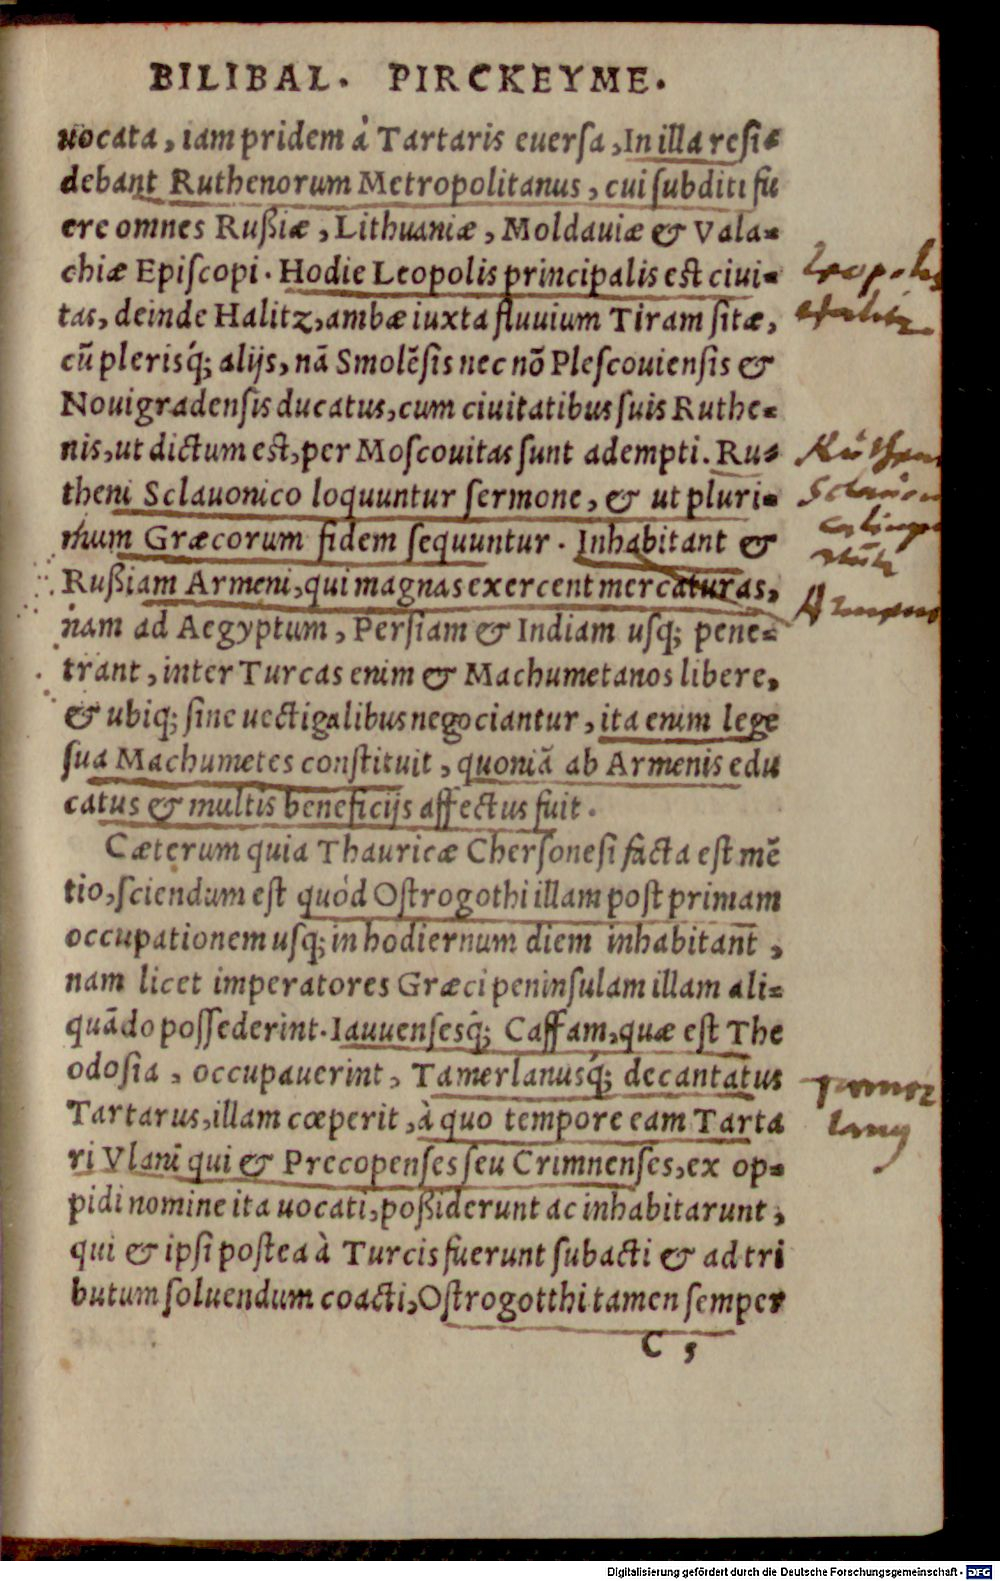 BILIBAL. PIRCKEYME.
uocata, iam pridem à Tartaris euersa, In illa resi-
debant Ruthenorum Metropolitanus, cui subditi fu
ere omnes Rußiæ, Lithuaniæ, Moldauiæ & Vala-
chiæ Episcopi. Hodie Leopolis principalis est ciui-
tas, deinde Halitz, ambæ iuxta fluuium Tiram sitæ,
cũ plerisq́; alijs, nã Smolẽsis nec nõ Plescouiensis &
Nouigradensis ducatus, cum ciuitatibus suis Ruthe-
nis, ut dictum est, per Moscouitas sunt adempti. Ru-
theni Sclauonico loquuntur sermone, & ut pluri-
mum Græcorum fidem sequuntur. Inhabitant &
Rußiam Armeni, qui magnas exercent mercaturas,
nam ad Aegyptum, Persiam & Indiam usq; pene-
trant, inter Turcas enim & Machumetanos libere,
& ubiq; sine uectigalibus negociantur, ita enim lege
sua Machumetes constituit, quoniã ab Armenis edu
catus & multis beneficijs affectus fuit.
Cæterum quia Thauricæ Chersonesi facta est mẽ
tio, sciendum est quòd Ostrogothi illam post primam
occupationem usq; in hodiernum diem inhabitant,
nam licet imperatores Græci peninsulam illam ali-
quãdo possederint. Iauuensesq́; Caffam, quæ est The
odosia, occupauerint, Tamerlanusq́; decantatus
Tartarus, illam cœperit, à quo tempore eam Tarta
ri Vlani qui & Precopenses seu Crimnenses, ex op-
pidi nomine ita uocati, poßiderunt ac inhabitarunt,
qui & ipsi postea à Turcis fuerunt subacti & ad tri
butum soluendum coacti, Ostrogotthi tamen semper
C 5
Leopolis
Rutheni
Armeni
Tamer
lanus
Digitalisierung gefördert durch die Deutsche Forschungsgemeinschaft - DFG